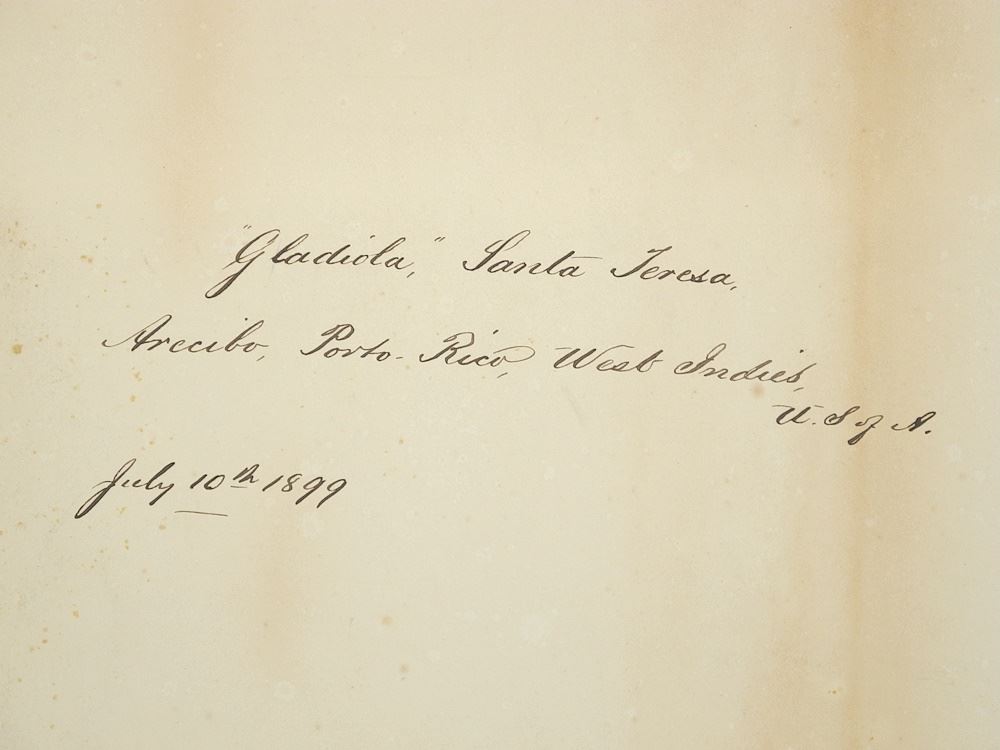 "Gladiola," Santa Teresa,
Arecibo, Porto-Rico, West Indies,
U.S of A.
July 10th 1899